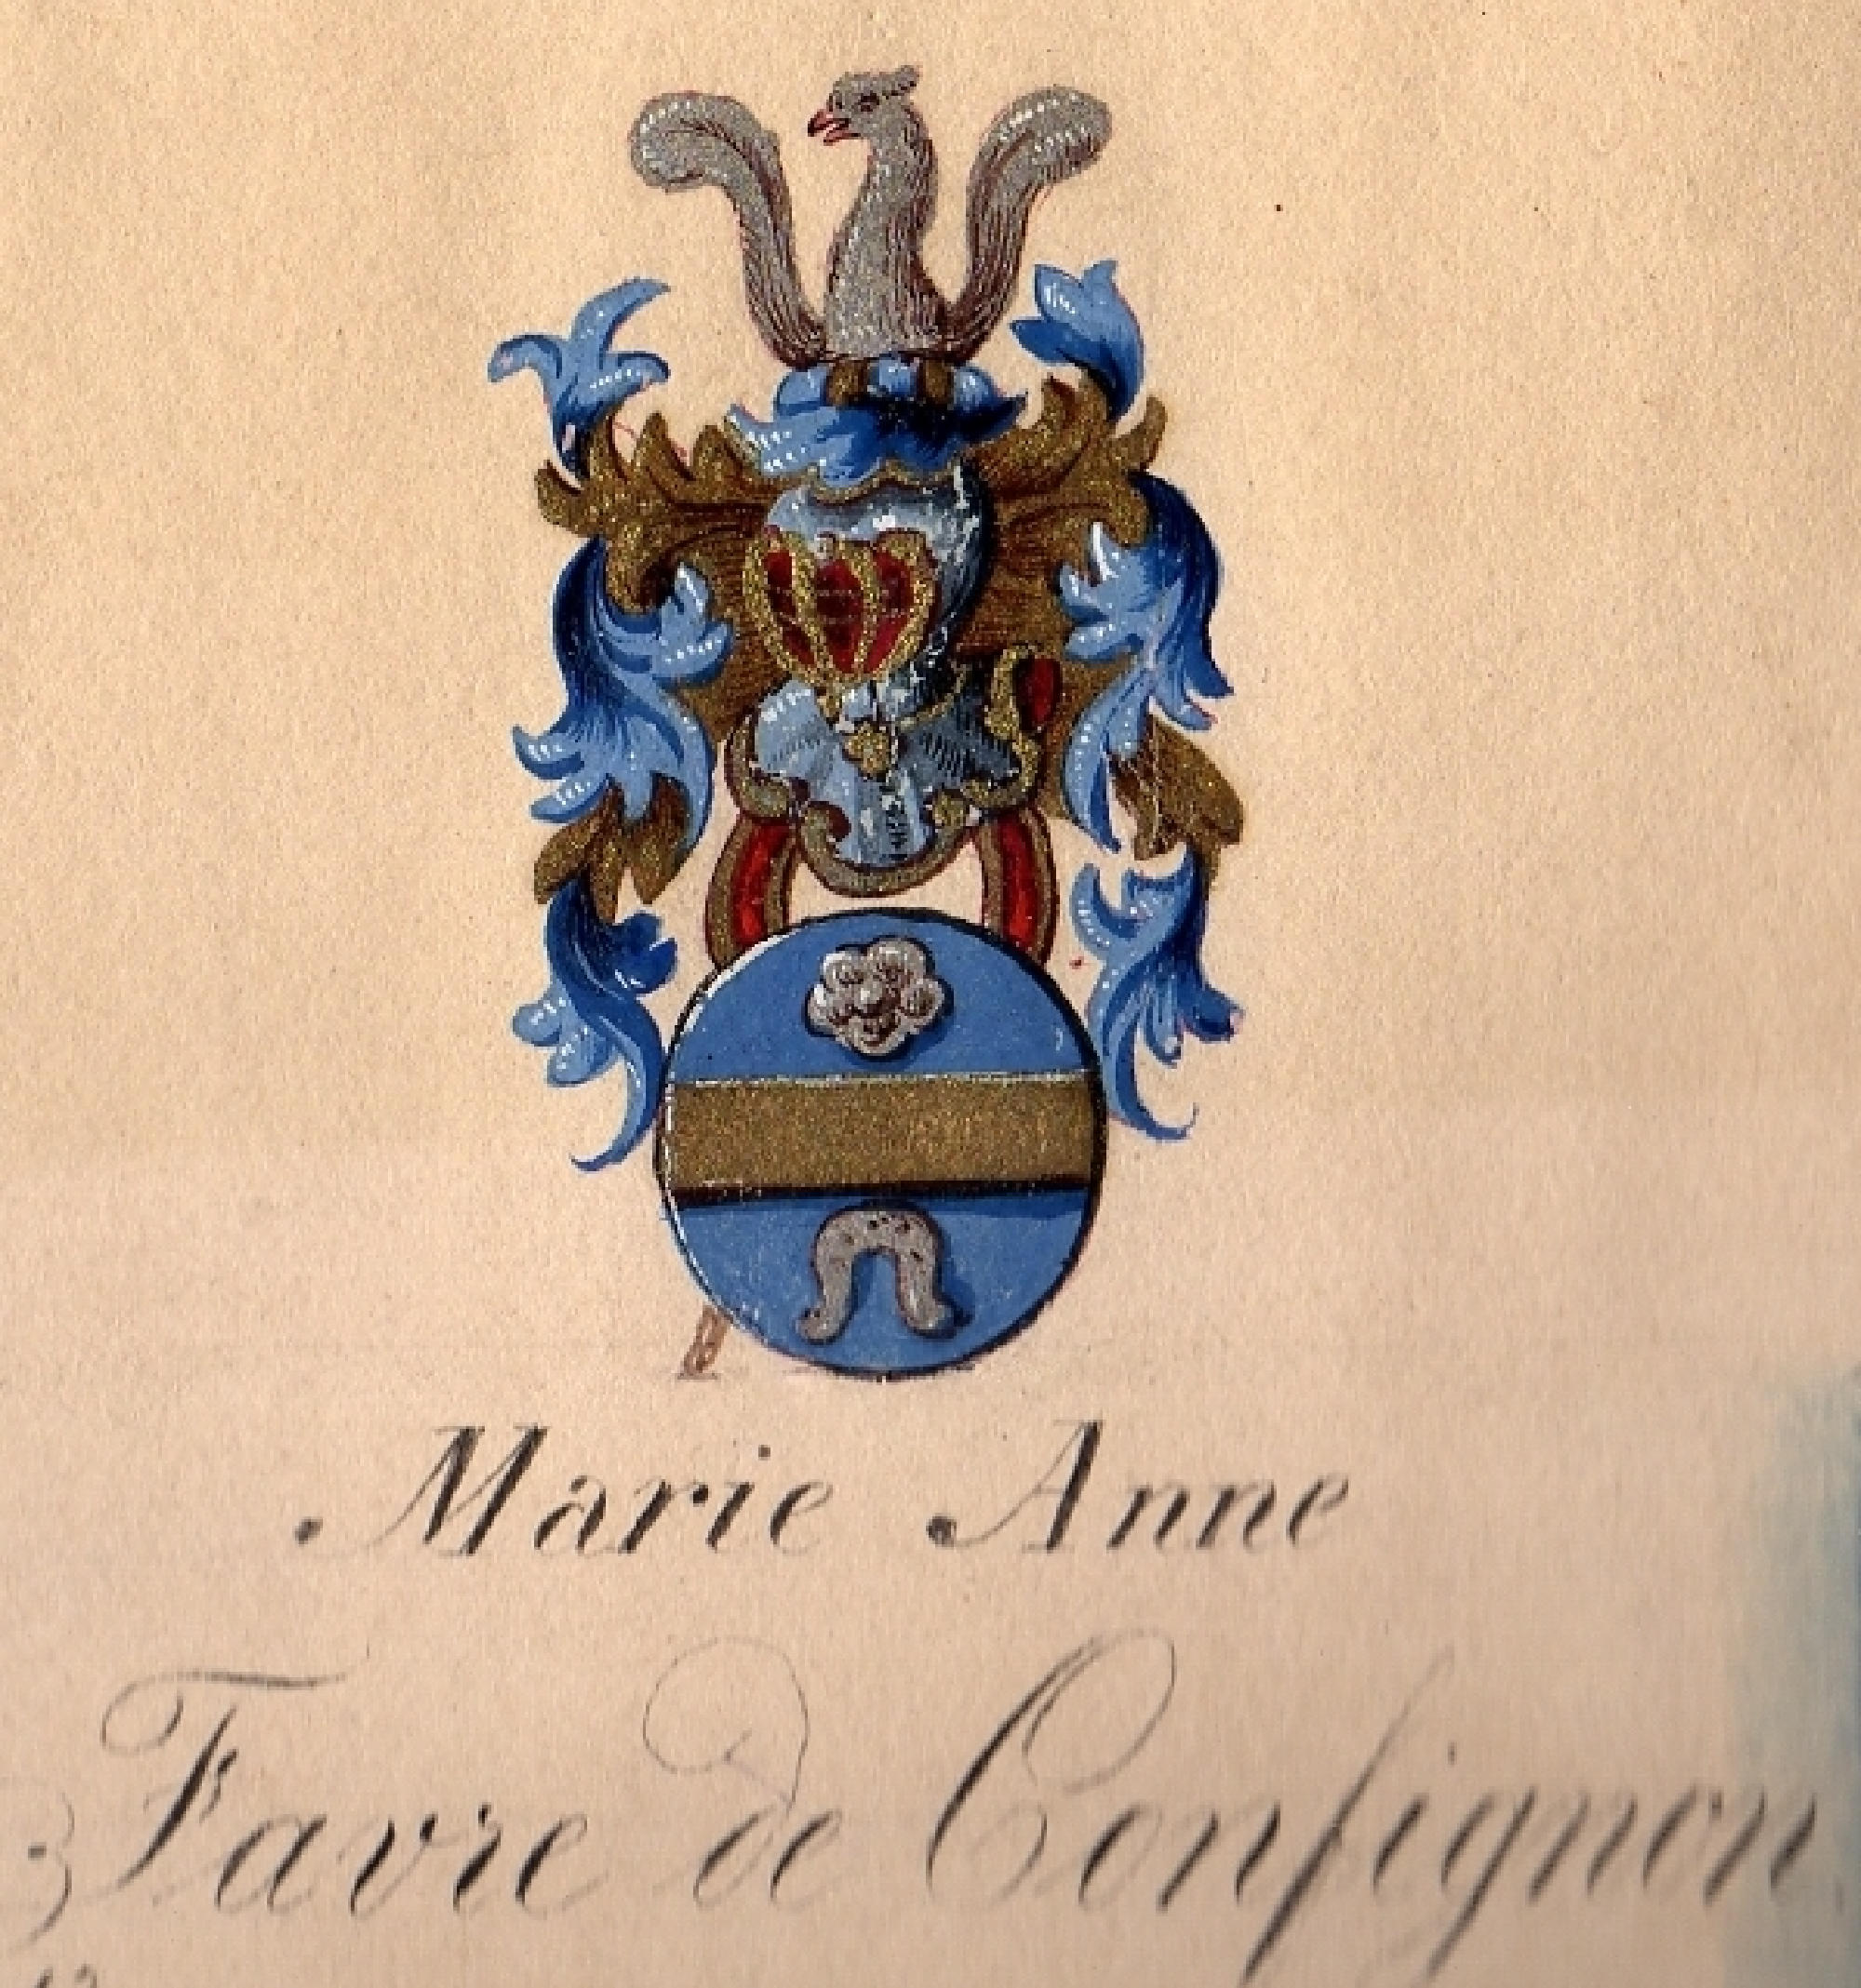 Marie Anne
Favre de Conſignon